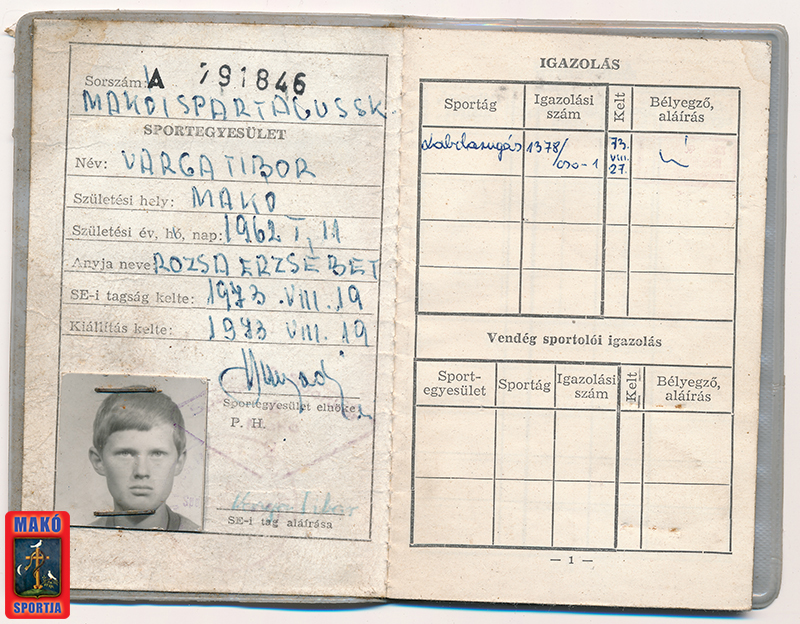 Sorszám: A 791846
MAKÓI SPARTACUS SK.
SPORTEGYESÜLET
Név: VARGA TIBOR
Születési hely: MAKÓ
Születési év, hó, nap: 1962 I, 11
Anyja neve: RÓZSA ERZSÉBET
SE-i tagság kelte: 1973.VIII.19
Kiállítás kelte: 1973 VIII.19
Sportegyesület elnöke
P. H.
Varga Tibor
SE-i tag aláírása
IGAZOLÁS
Sportág
Igazolási szám
Kelt
Bélyegző, aláírás
Labdarúgás 1378/
73.
VIII.
27.
Vendég sportolói igazolás
Sport-
egyesület
Sportág
Igazolási
szám
Kelt
Bélyegző,
aláírás
— 1 —
MAKÓ
SPORTJA